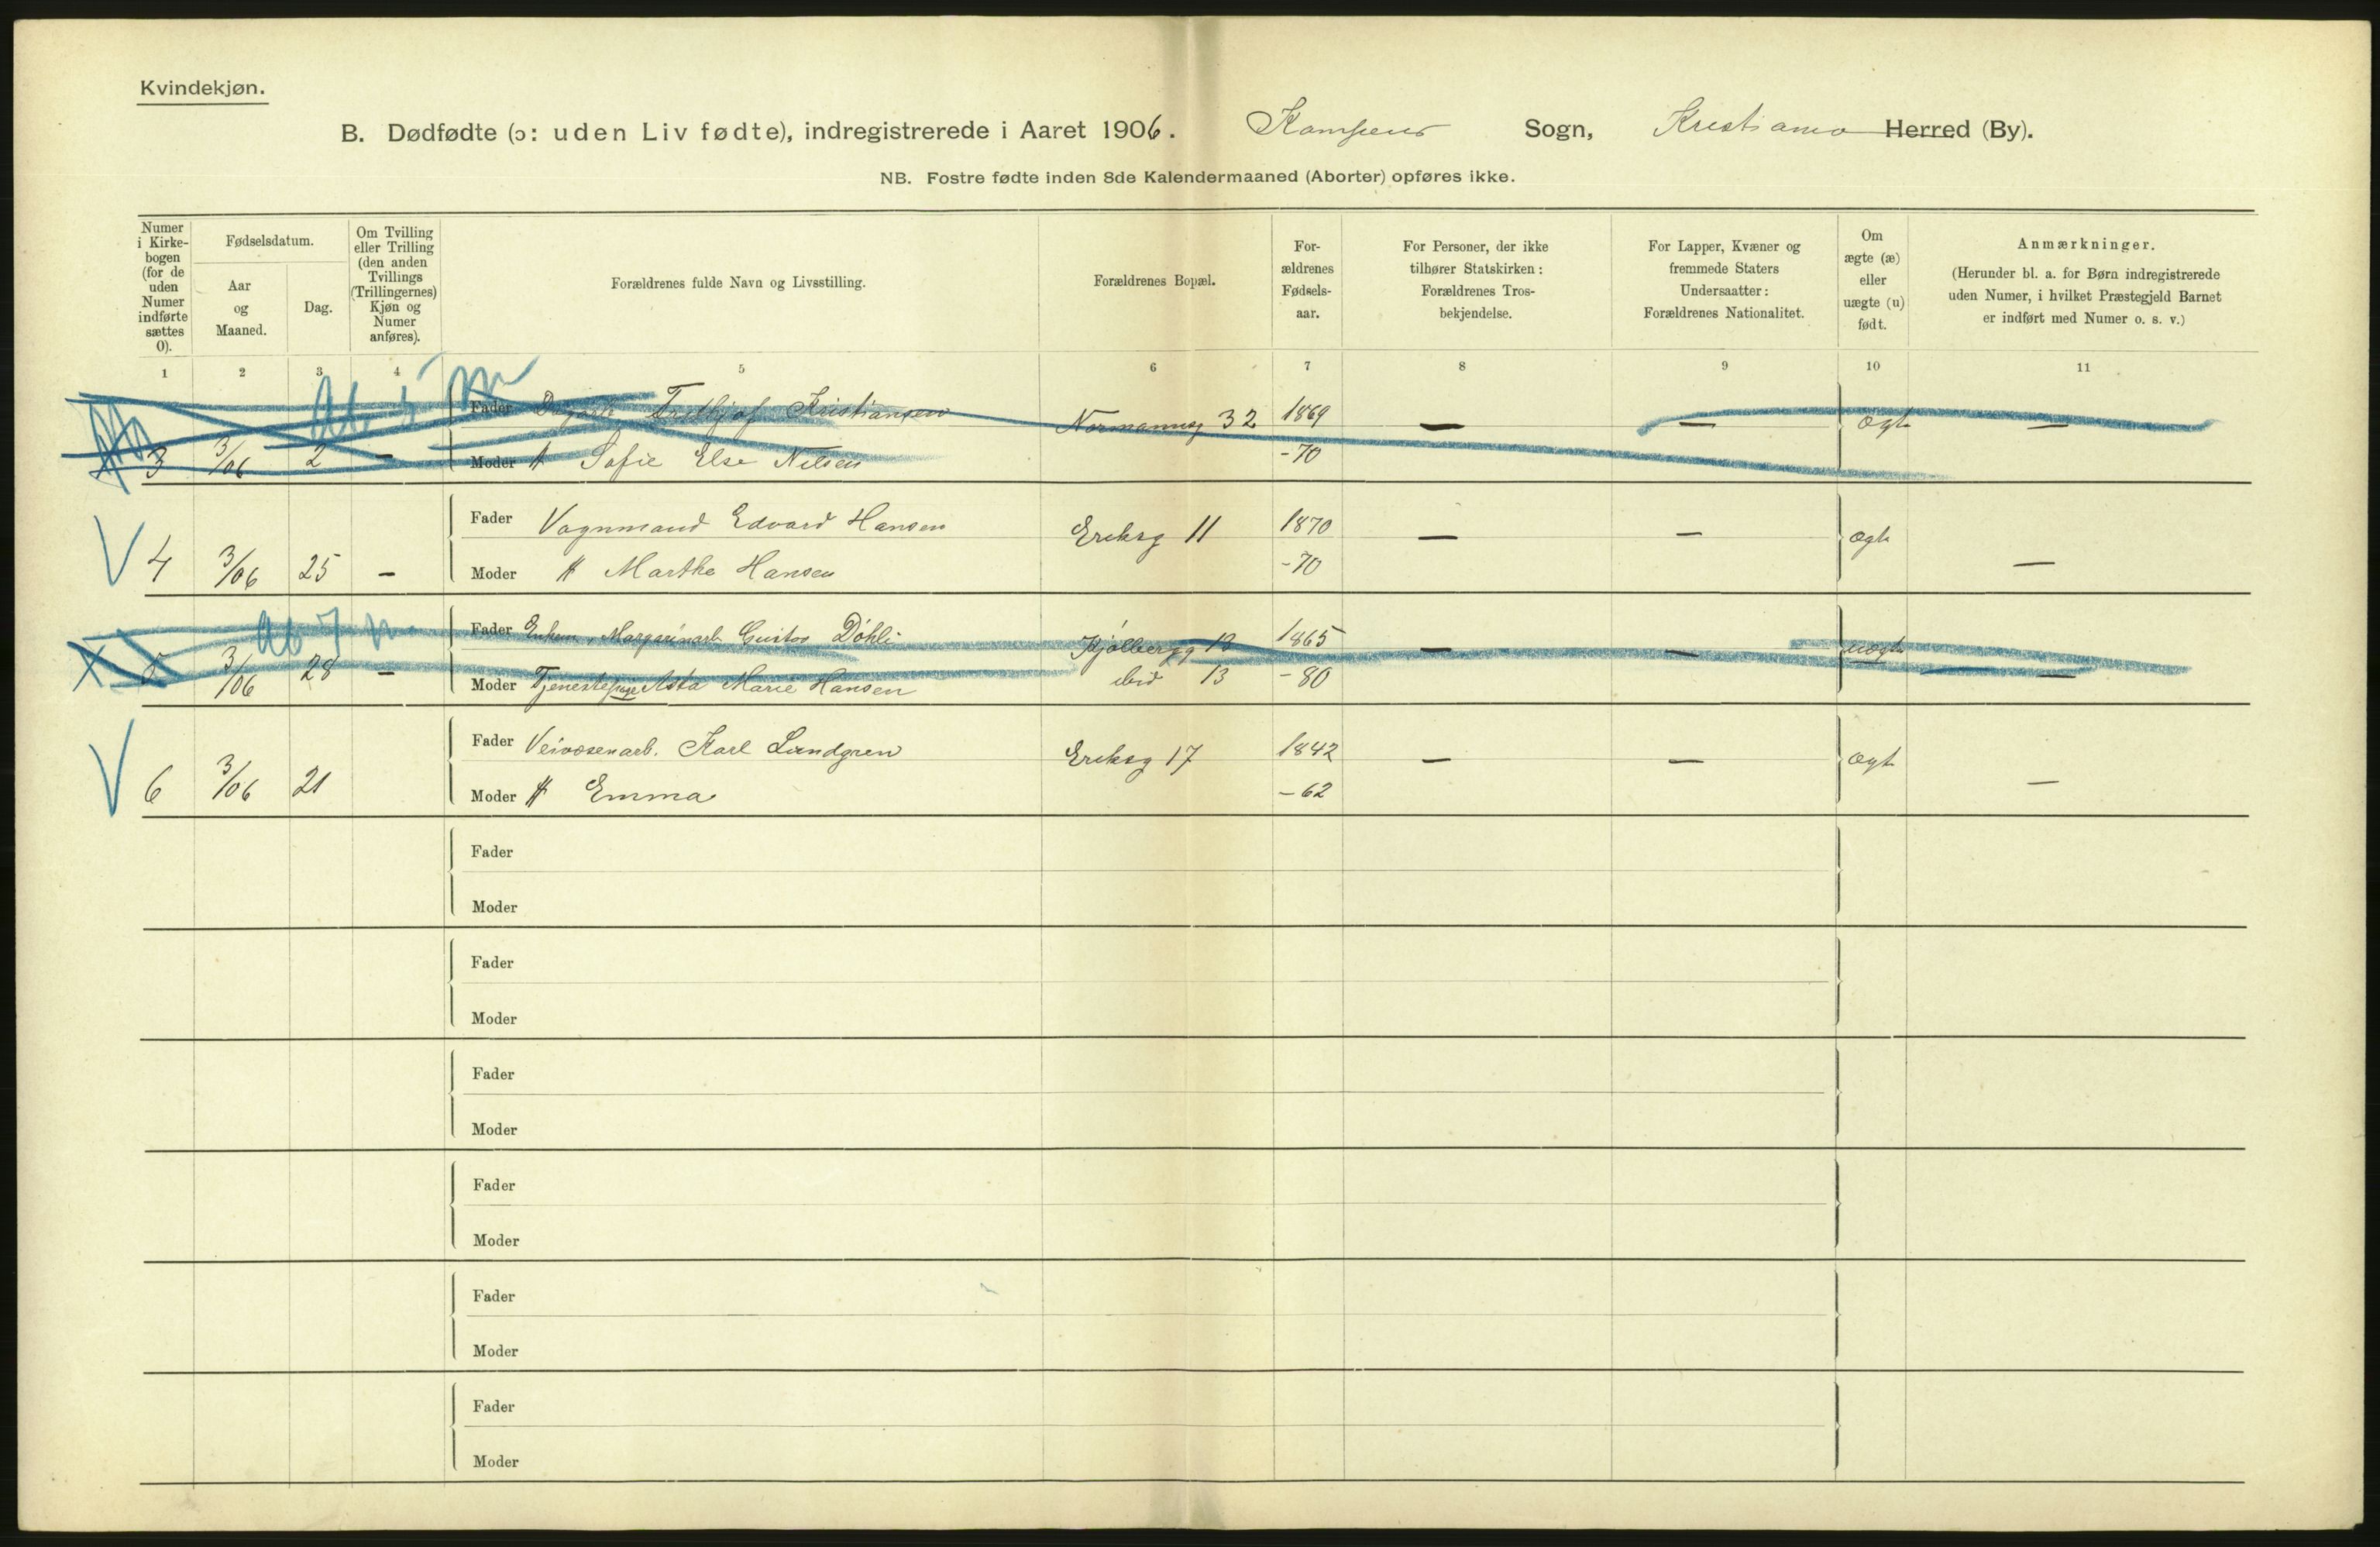 Kvindekjøn.
B. Dødfødte (ɔ: uden Liv fødte), indregistrerede i Aaret 1906. Kampens Sogn, Kristiania Herred (By).
NB. Fostre fødte inden 8de Kalendermaaned (Aborter) opføres ikke.
Numer i Kirkebogen (for de uden Numer indførte sættes 0).
Fødselsdatum.
Aar og Maaned.
Dag.
Om Tvilling eller Trilling (den anden Tvillings (Trillingernes) Kjøn og Numer anføres).
Forældrenes fulde Navn og Livsstilling.
Forældrenes Bopæl.
Forældrenes Fødselsaar.
For Personer, der ikke tilhører Statskirken: Forældrenes Trosbekjendelse.
For Lapper, Kvæner og fremmede Staters Undersaatter: Forældrenes Nationalitet.
Om ægte (æ) eller uægte (u) født.
Anmærkninger.
(Herunder bl. a. for Børn indregistrerede uden Numer, i hvilket Præstegjeld Barnet er indført med Numer o. s. v.)
1 2 3 4 5 6 7 8 9 10 11
Ab 5 m
Fader Fridtjof Kristiansen Normannsg 32 1869 — — ægte —
3 3/06 2 — Moder H Sofie Else Nilsen -70
Fader Vognmand Edvard Hansen Eriksg 11 1870 — — ægte
V 4 3/06 25 — Moder H Marthe Hansen -70 —
Ab 7 m
Fader Enkem. Margarinarb. Gustav Döhli Kjølbergg 13 1865 — — uægte
X 5 3/06 28 — Moder Tjenestepige Asta Marie Hansen ibid 13 -80 —
Fader Veivæsenarb. Karl Lundgren Eriksg 17 1842 — — ægt
V 6 3/06 21 Moder H Emma -62 —
Fader
Moder
Fader
Moder
Fader
Moder
Fader
Moder
Fader
Moder
Fader
Moder